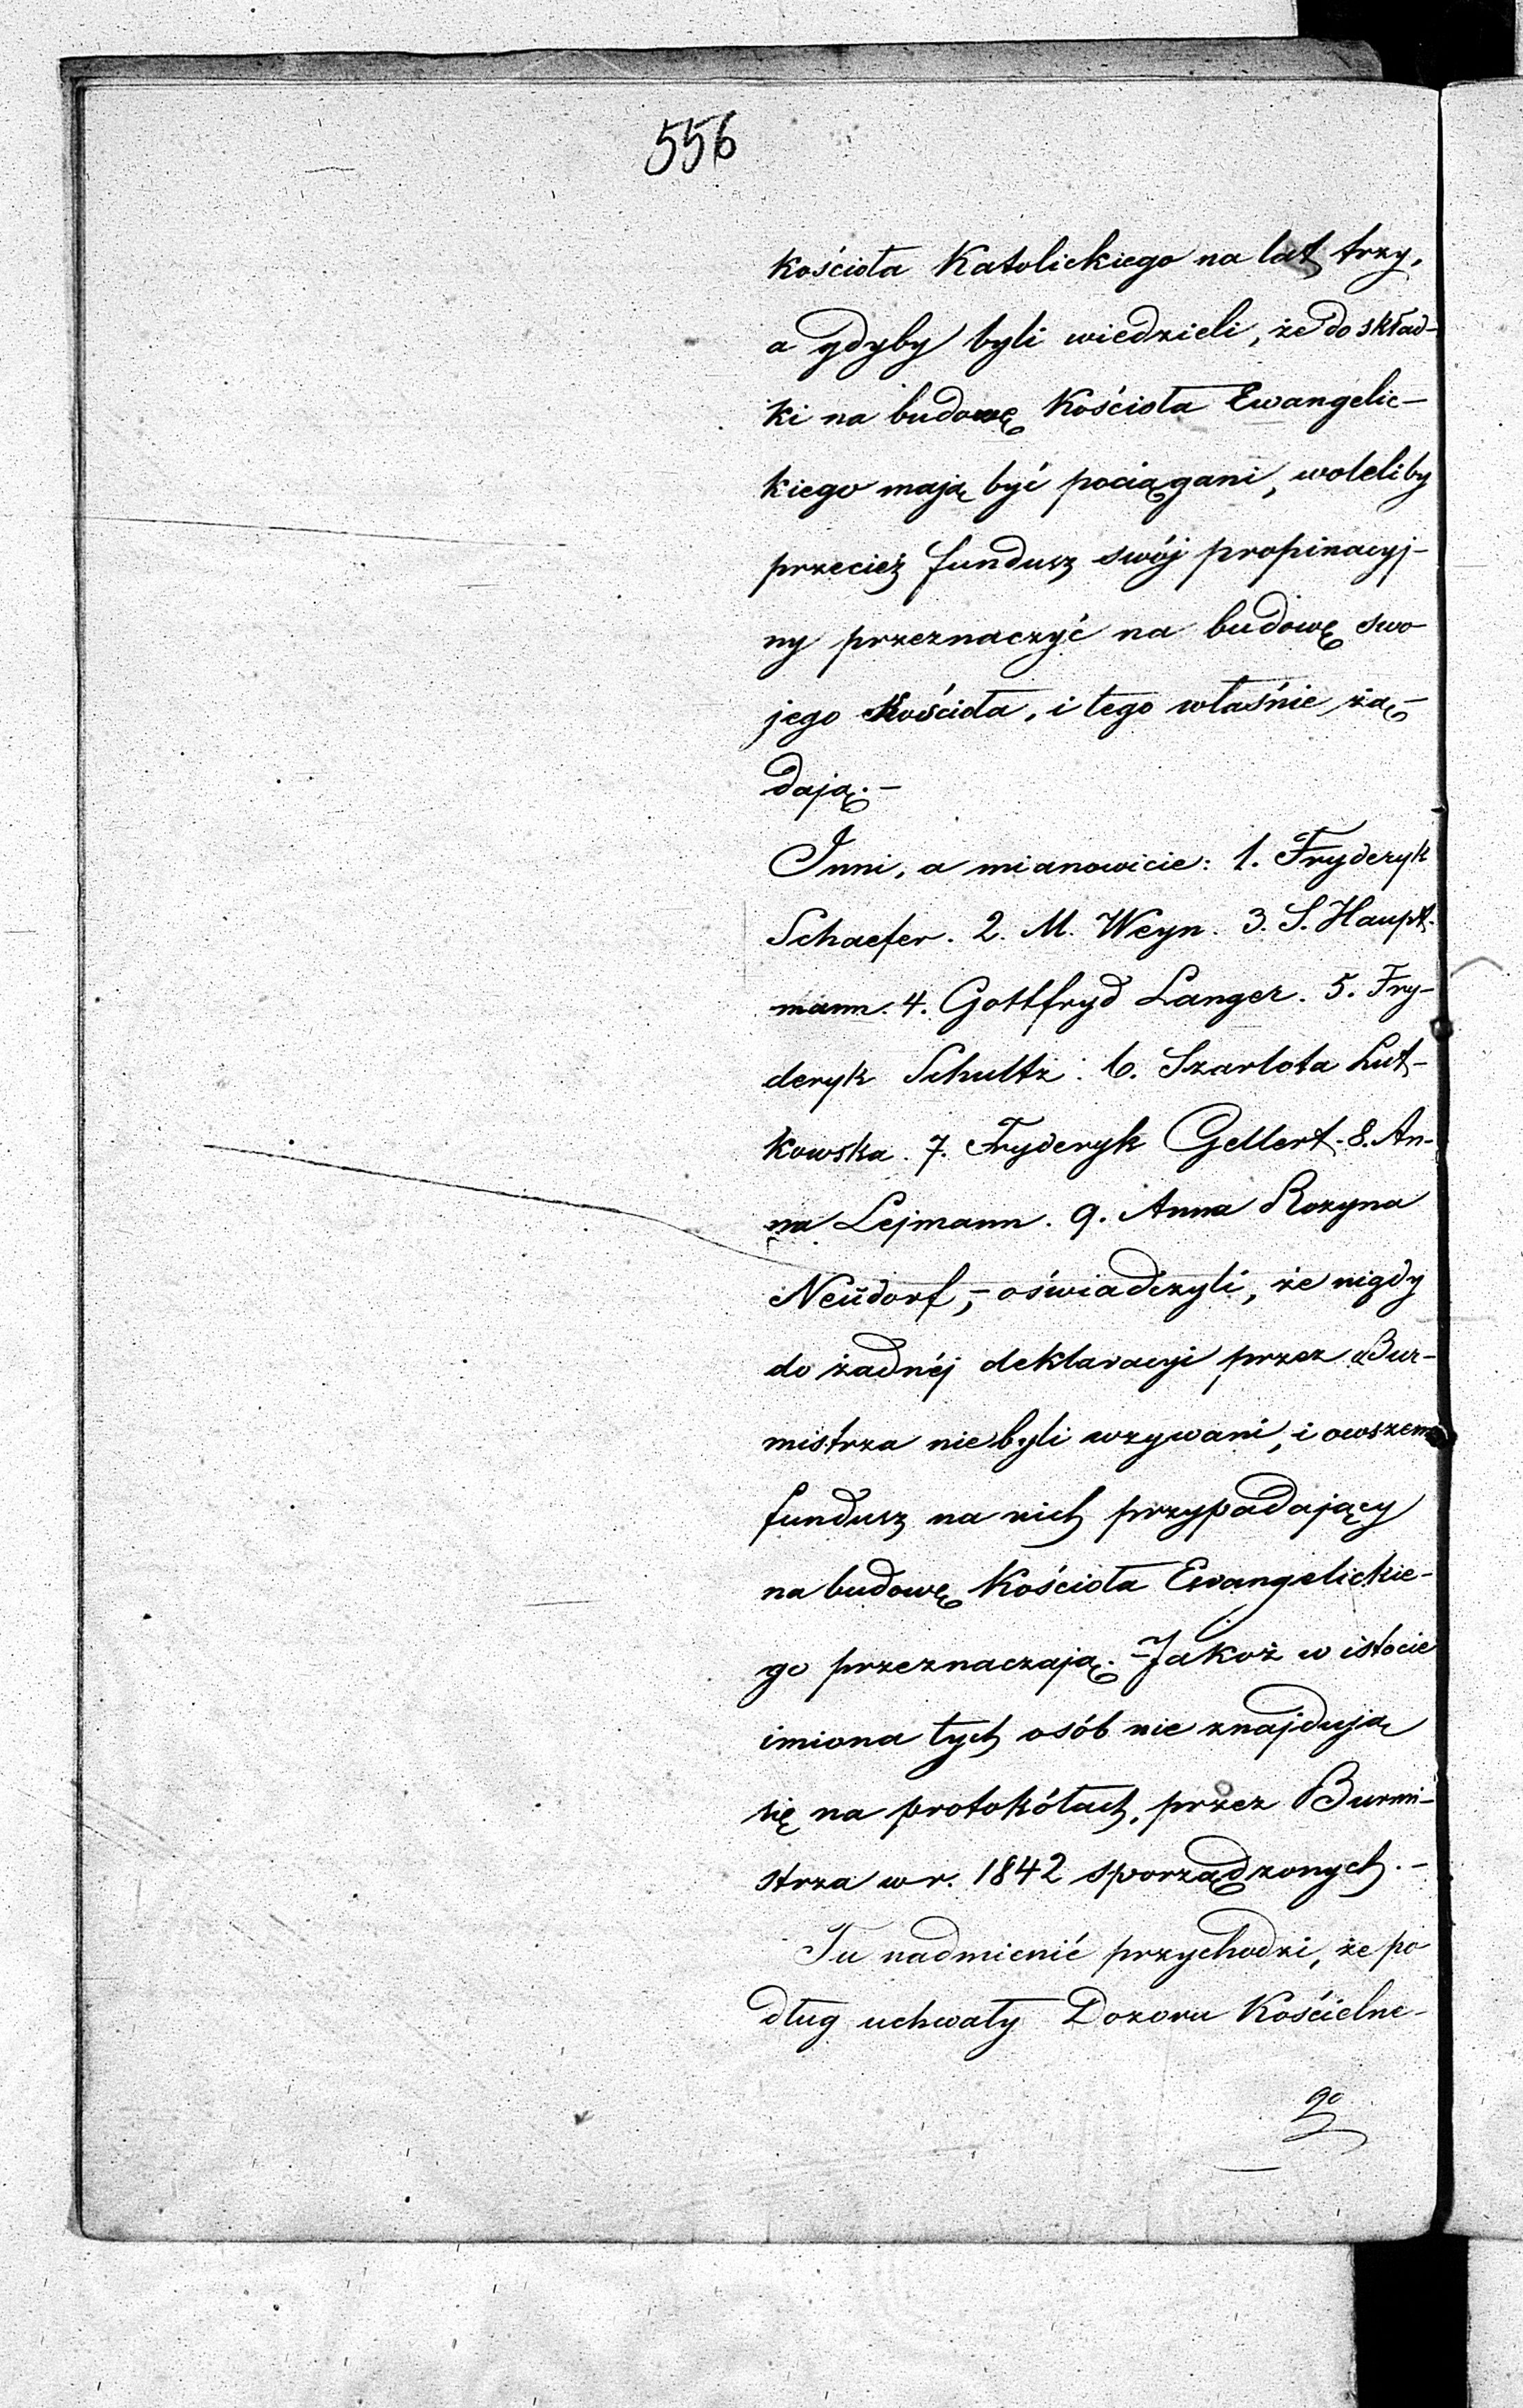 556
kościoła Katolickiego na lat trzy,
a gdyby byli wiedzieli, że do skład-
ki na budowę Kościoła Ewangelic-
kiego mają być pociągani, woleliby
przecież fundusz swój propinacyj-
ny przeznaczyć na budowę swo
jego Kościoła, i tego właśnie żą-
dają.-
Inni, a mianowicie: 1. Fryderyk
Schaefer. 2. M. Weyn. 3. S. Haupt-
mann. 4. Gottfryd Langer. 5. Fry-
deryk Schultz. 6. Szarlota Lut-
kowska. 7. Fryderyk Gellert. 8. An-
na Lejmann. 9. Anna Rozyna
Neŭdorf,- oświadczyli, że nigdy
do żadnéj deklaracyi przez Bur-
mistrza nie byli wzywani, i owszem
fundusz na nich przypadający
na budowę Kościoła Ewangelickie-
go przeznaczają.- Jakoż w istocie
imiona tych osób nie znajdują
się na protokółach, przez Burmi-
strza w r. 1842 sporządzonych.-
Tu nadmienić przychodzi, że po
dług uchwały Dozoru Kościelne-
go